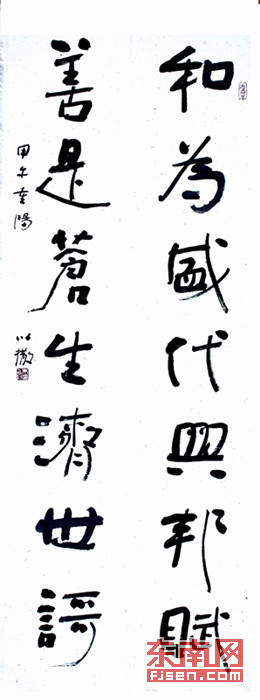 和為盛代興邦賦
善是蒼生濟世謌
甲午重陽 以撒
东南网
fjsen.com